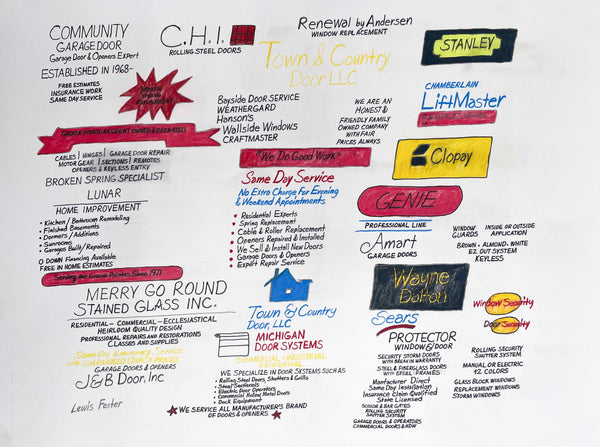 COMMUNITY
GARAGE DOOR
Garage Door & Openers Expert
ESTABLISHED IN 1968-
FREE ESTIMATES
INSURANCE WORK
SAME DAY SERVICE
BROKEN
SPRING
CABLES | HINGES | GARAGE DOOR REPAIR
MOTOR GEAR | SECTIONS | REMOTES
OPENERS & KEYLESS ENTRY
BROKEN SPRING SPECIALIST
LUNAR
HOME IMPROVEMENT
• Kitchen / Bathroom Remodeling
• Finished Basements
• Dormers / Additions
• Sunrooms
• Garages Built / Repaired
0 DOWN Financing Available
FREE IN HOME ESTIMATES
Serving the Grosse Pointes Since 1971
MERRY GO ROUND
STAINED GLASS INC.
RESIDENTIAL - COMMERCIAL - ECCLESIASTICAL
HEIRLOOM QUALITY DESIGN
PROFESSIONAL REPAIRS AND RESTORATIONS
CLASSES AND SUPPLIES
Same Day Emergency Service
with GUARANTEED LOWEST PRICES
GARAGE DOORS & OPENERS
J&B Door, Inc
Lewis Foster
C.H.I.
ROLLING STEEL DOORS
Renewal by Andersen
WINDOW REPLACEMENT
Town & Country
Door LLC
Bayside Door SERVICE
WEATHERGARD
Hanson's
Wallside Windows
CRAFTMASTER
WE ARE AN
HONEST &
FRIENDLY FAMILY
OWNED COMPANY
WITH FAIR
PRICES ALWAYS
"We Do Good Work"
Same Day Service
No Extra Charge For Evening
& Weekend Appointments
• Residential Experts
• Spring Replacement
• Cable & Roller Replacement
• Openers Repaired & Installed
• We Sell & Install New Doors
• Garage Doors & Openers
• Expert Repair Service
Town & Country
Door, LLC
MICHIGAN
DOOR SYSTEMS
COMMERCIAL - INDUSTRIAL
RESIDENTIAL
WE SPECIALIZE IN DOOR SYSTEMS SUCH AS
• Rolling Steel Doors, Shutters & Grills
• Steel Sectionals
• Electric Door Operators
• Commercial Hollow Metal Doors
• Dock Equipment
WE SERVICE ALL MANUFACTURER'S BRAND
OF DOORS & OPENERS
STANLEY
CHAMBERLAIN
LiftMaster
Clopay
GENIE
PROFESSIONAL LINE
Amarr
GARAGE DOORS
WINDOW
GUARDS
INSIDE OR OUTSIDE
APPLICATION
BROWN - ALMOND - WHITE
EZ OUT SYSTEM
KEYLESS
Wayne
Dalton
Sears
Window Security
Door Security
PROTECTOR
WINDOW & DOOR
SECURITY STORM DOORS
WITH BREAK IN WARRANTY
STEEL & FIBERGLASS DOORS
WITH STEEL FRAMES
Manufacturer Direct
Same Day Installation
Insurance Claim Qualified
State Licensed
SCISSOR & BAR GATES
ROLLING SECURITY
SHUTTER SYSTEM
GARAGE DOORS & OPERATORS
COMMERCIAL DOORS & HDW
ROLLING SECURITY
SHUTTER SYSTEM
MANUAL OR ELECTRIC
12 COLORS
GLASS BLOCK WINDOWS
REPLACEMENT WINDOWS
STORM WINDOWS